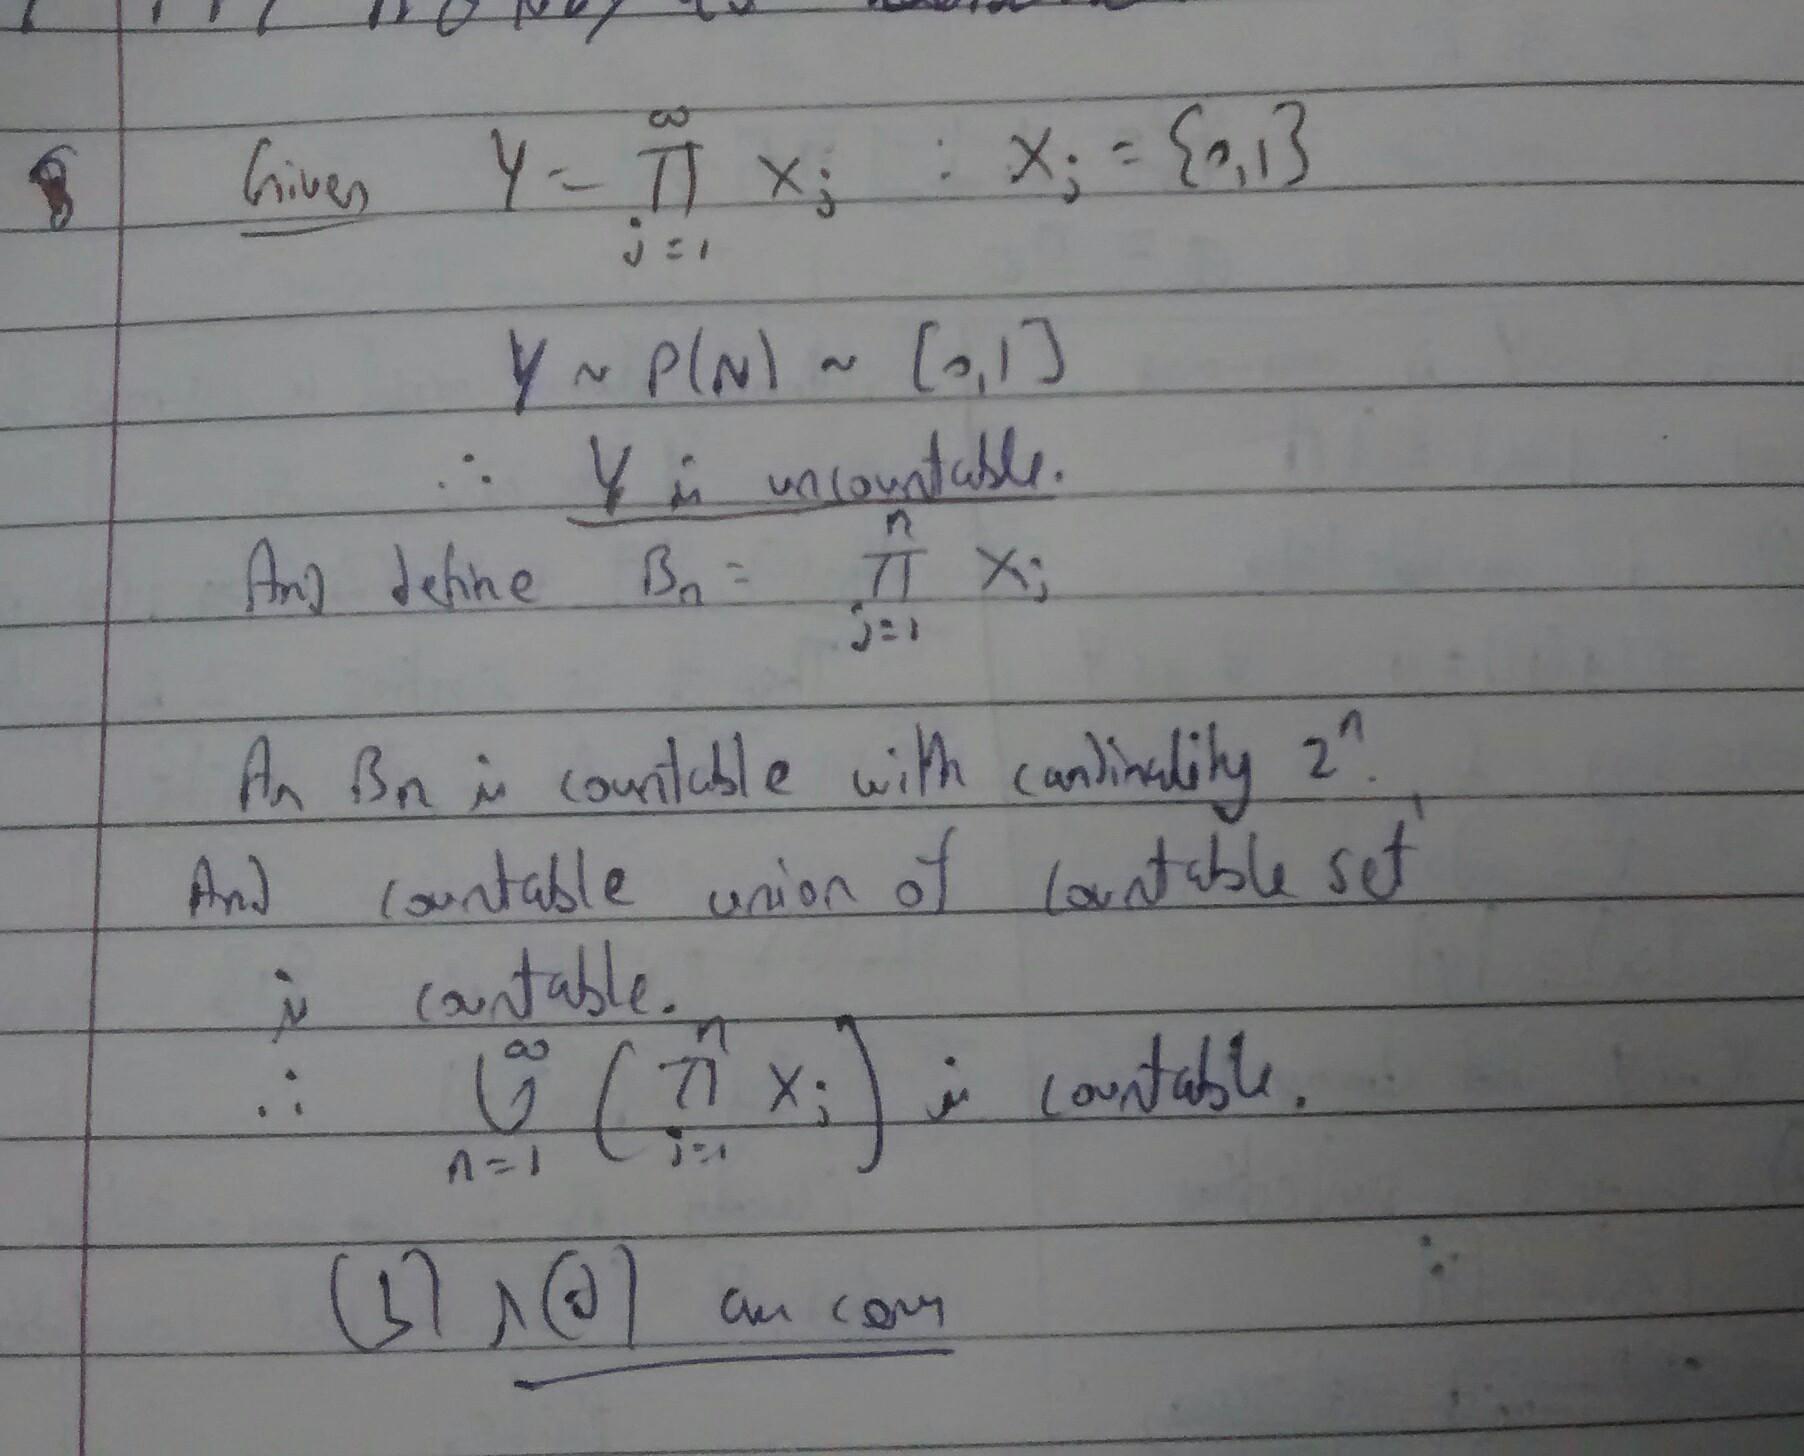 8 Given Y = ∞ ∏ j=1 Xj : Xj = {0,1}
Y ~ P(N) ~ [0,1]
∴ Y is uncountable.
And define Bn = n ∏ j=1 Xj
As Bn is countable with cardinality 2^n.
And countable union of countable set
is countable.
∴ ∞ ∪ n=1 ( n ∏ j=1 Xj ) is countable.
(b) (d) are